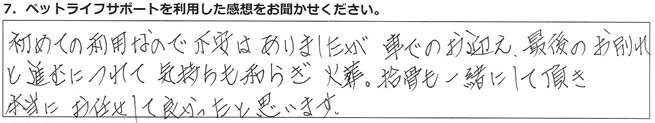 7. ペットライフサポートを利用した感想をお聞かせください。
初めての利用なので不安はありましたが 車でのお迎え、最後のお別れ
と進むにつれて 気持ちも和らぎ 火葬。拾骨も一緒にして頂き
本当に お任せして良かったと思います。